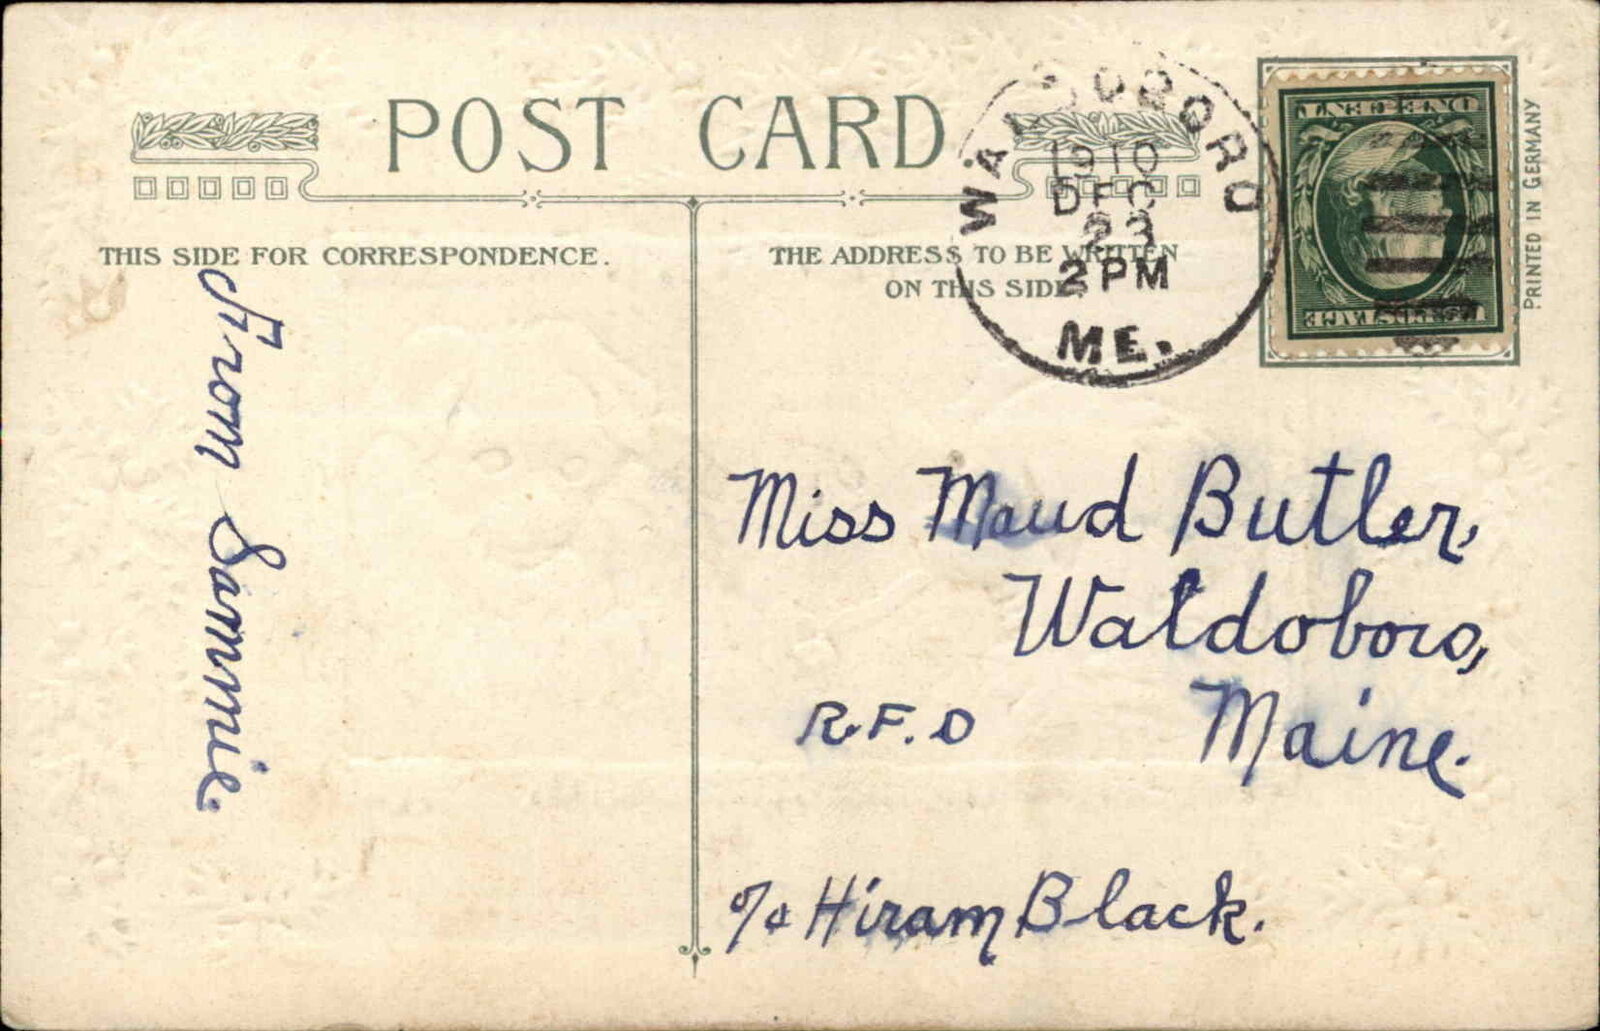 POST CARD
THIS SIDE FOR CORRESPONDENCE.
THE ADDRESS TO BE WRITTEN
ON THIS SIDE.
WALDOBORO
1910
DEC
23
2 PM
ME.
ONE CENT
U.S. POSTAGE
PRINTED IN GERMANY
From Sammie.
Miss Maud Butler,
Waldoboro,
R.F.D Maine.
c/o Hiram Black.